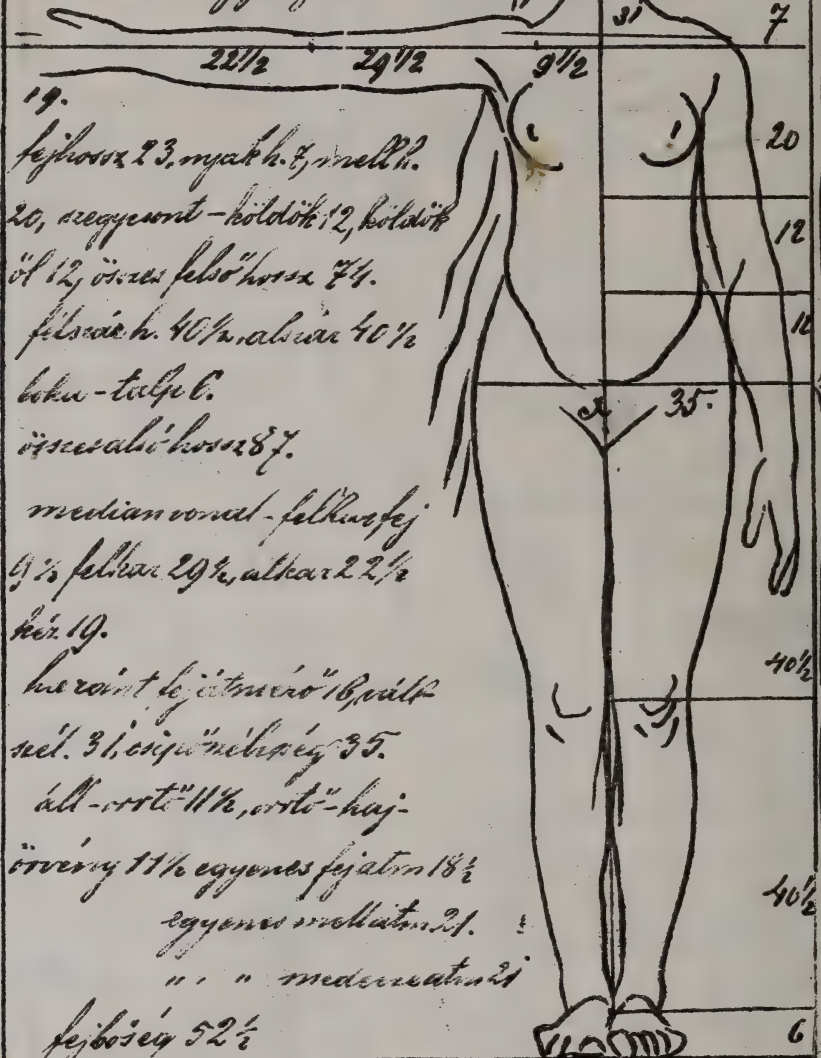 31
7
22½ 29½ 9½
19.
fejhossz 23, nyak h. 7, mell h.
20
20, szegycsont - köldök 12, köldök
12
öl 12, összes felső hossz 74.
12
felszár h. 40½, alszár 40½
boka - talp 6.
35.
összes alsó hossz 87.
median vonal - felkar fej
9½ felkar 29½, alkar 22½
kéz 19.
40½
haránt fejátmérő 16, váll
szél. 31, csipőszélesség 35.
áll - orrtő 11½, orrtő - haj-
örvény 11½ egyenes fejatm 18½
40½
egyenes mellátm 21.
" " medenceatm 21
fejbőség 52½
6